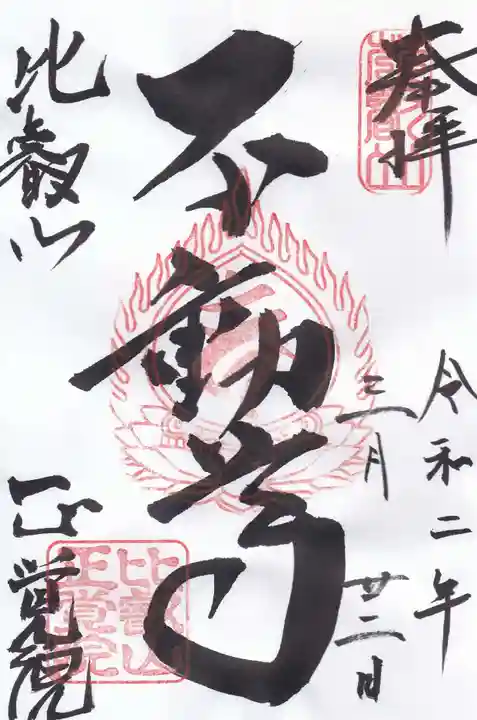 奉拝
令和二年
三月
廿二日
不動尊
比叡山
正覚院
比叡山
正覚院